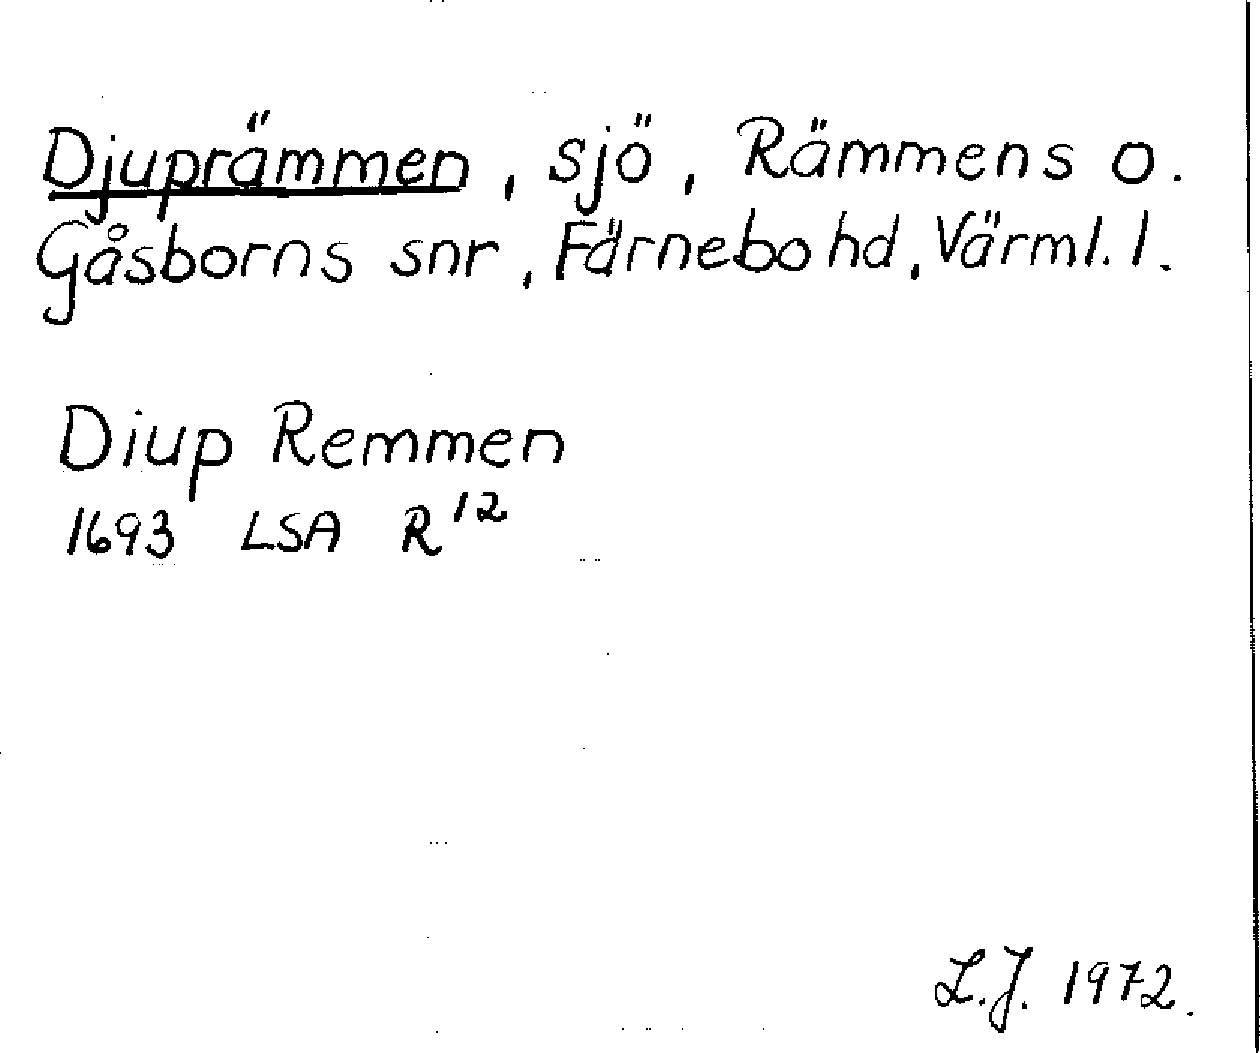 Djuprämmen, sjö, Rämmens o.
Gåsborns snr, Färnebo hd, Värml. l.
Diup Remmen
1693 LSA R 12
L.J. 1972.